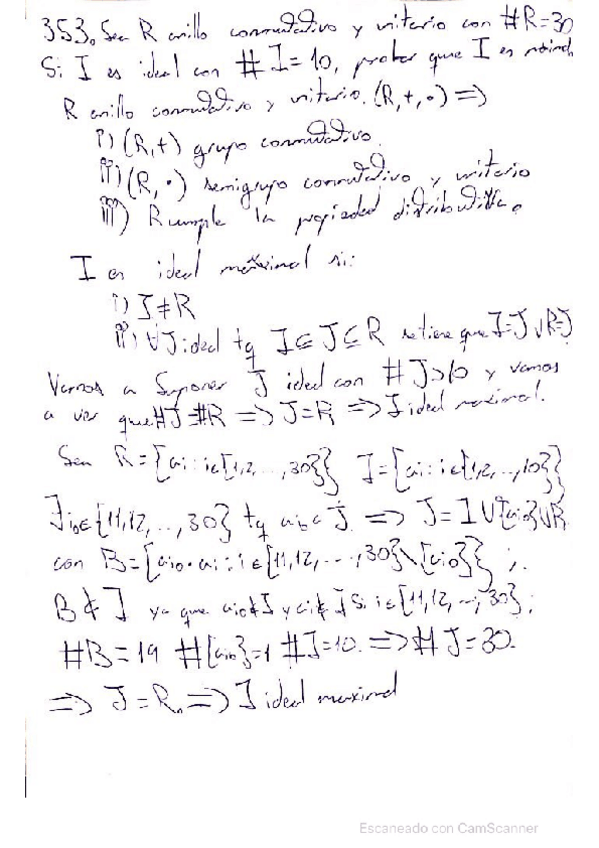 353. Sea R anillo conmutativo y unitario con #R=30
Si I es ideal con # I=10, probar que I es maximal
R anillo conmutativo y unitario. (R,+,·) =>
i) (R,+) grupo conmutativo.
ii) (R,·) semigrupo conmutativo y unitario
iii) R cumple la propiedad distributiva.
I es ideal maximal si:
i) I≠R
ii) ∀J ideal tq I⊆J⊆R se tiene que I=J ∨ R=J
Vamos a suponer J ideal con #J>10 y vamos
a ver que #J=#R => J=R => I ideal maximal.
Sea R={ai: i∈{1,2,...,30}} I={ai: i∈{1,2,...,10}}
∃i0∈{11,12,...,30} tq ai0∈J => J=I∪{ai0}∪B
con B={ai0·ai: i∈{11,12,...,30}\{ai0}};
B⊄I ya que ai0∉I y ai∉I si i∈{11,12,...,30};
#B=19 #{ai0}=1 #I=10. => #J=30.
=> J=R. => I ideal maximal
Escaneado con CamScanner